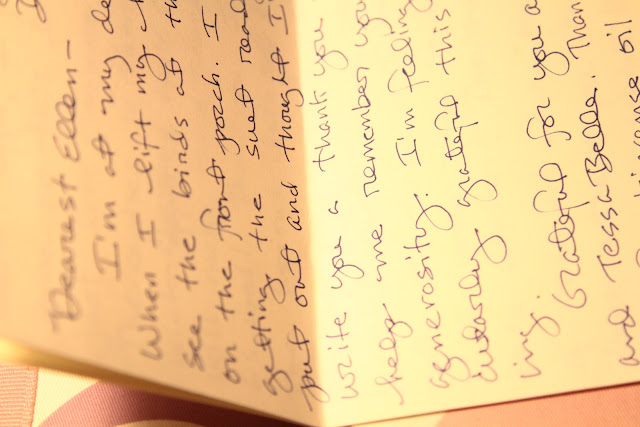 Dearest Ellen—
I'm at my de
When I lift my
see the birds at th
on the front porch. I
getting the suet read
put out and thought I
write you a thank you
help me remember you
generosity. I'm feeling
cularly grateful this
ing.
Grateful for you a
and TessaBella. Than
oil